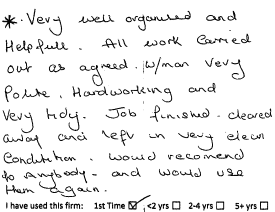 *. Very well organised and
Helpfull. All work Carried
out as agreed. W/man very
Polite. Hardworking and
Very tidy. Job finished. cleared
away and left in very clean
Condition. would recomend
to Anybody. and would use
them again.
I have used this firm: 1st Time ☑ <2 yrs ☐ 2-4 yrs ☐ 5+ yrs ☐